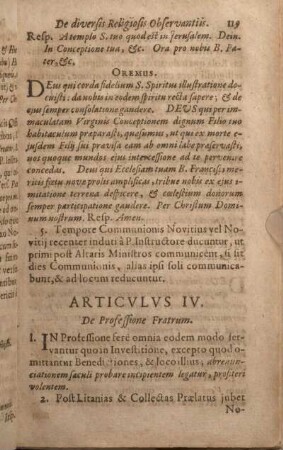 De diversis Religiosis Observantiis. 119
Resp. A templo S. tuo quod est in Jerusalem. Dein.
In Conceptione tua, &c. Ora pro nobu B. Pa-
ter, &c.
OREMUS.
DEus qui corda fidelium S. Spiritus illustratione do-
cuisti: da nobu in eodem spiritu recta sapere; & de
ejus semper consolatione gaudere. DEUS qui per im-
maculatam Virginis Conceptionem dignum Filio tuo
habitaculum præparasti, quæsumus, ut qui ex morte e-
jusdem Filij sui prævisa eam ab omni labe præservasti,
nos quoque mundos ejus intercessione ad te pervenire
concedas. Deus qui Ecclesiam tuam B. Francisci me-
ritis fœtu novæ prolis amplificas, tribue nobis ex ejus i-
mitatione terrena despicere, & cœlestium donorum
semper participatione gaudere. Per Christum Domi-
num nostrum. Resp. Amen.
5. Tempore Communionis Novitius vel No-
vitij recenter induti à P. Instructore ducuntur, ut
primi post Altaris Ministros communicent, si sit
dies Communionis, alias ipsi soli communica-
bunt, & ad locum reducuntur.
ARTICVLVS IV.
De Professione Fratrum.
1. IN Professione ferè omnia eodem modo ser-
vantur quo in Investitione, excepto quod o-
mittantur Benedictiones, & loco illius, abrenun-
ciationem sæculi probare incipientem legatur, profiteri
volentem.
2. Post Litanias & Collectas Prælatus jubet
No-